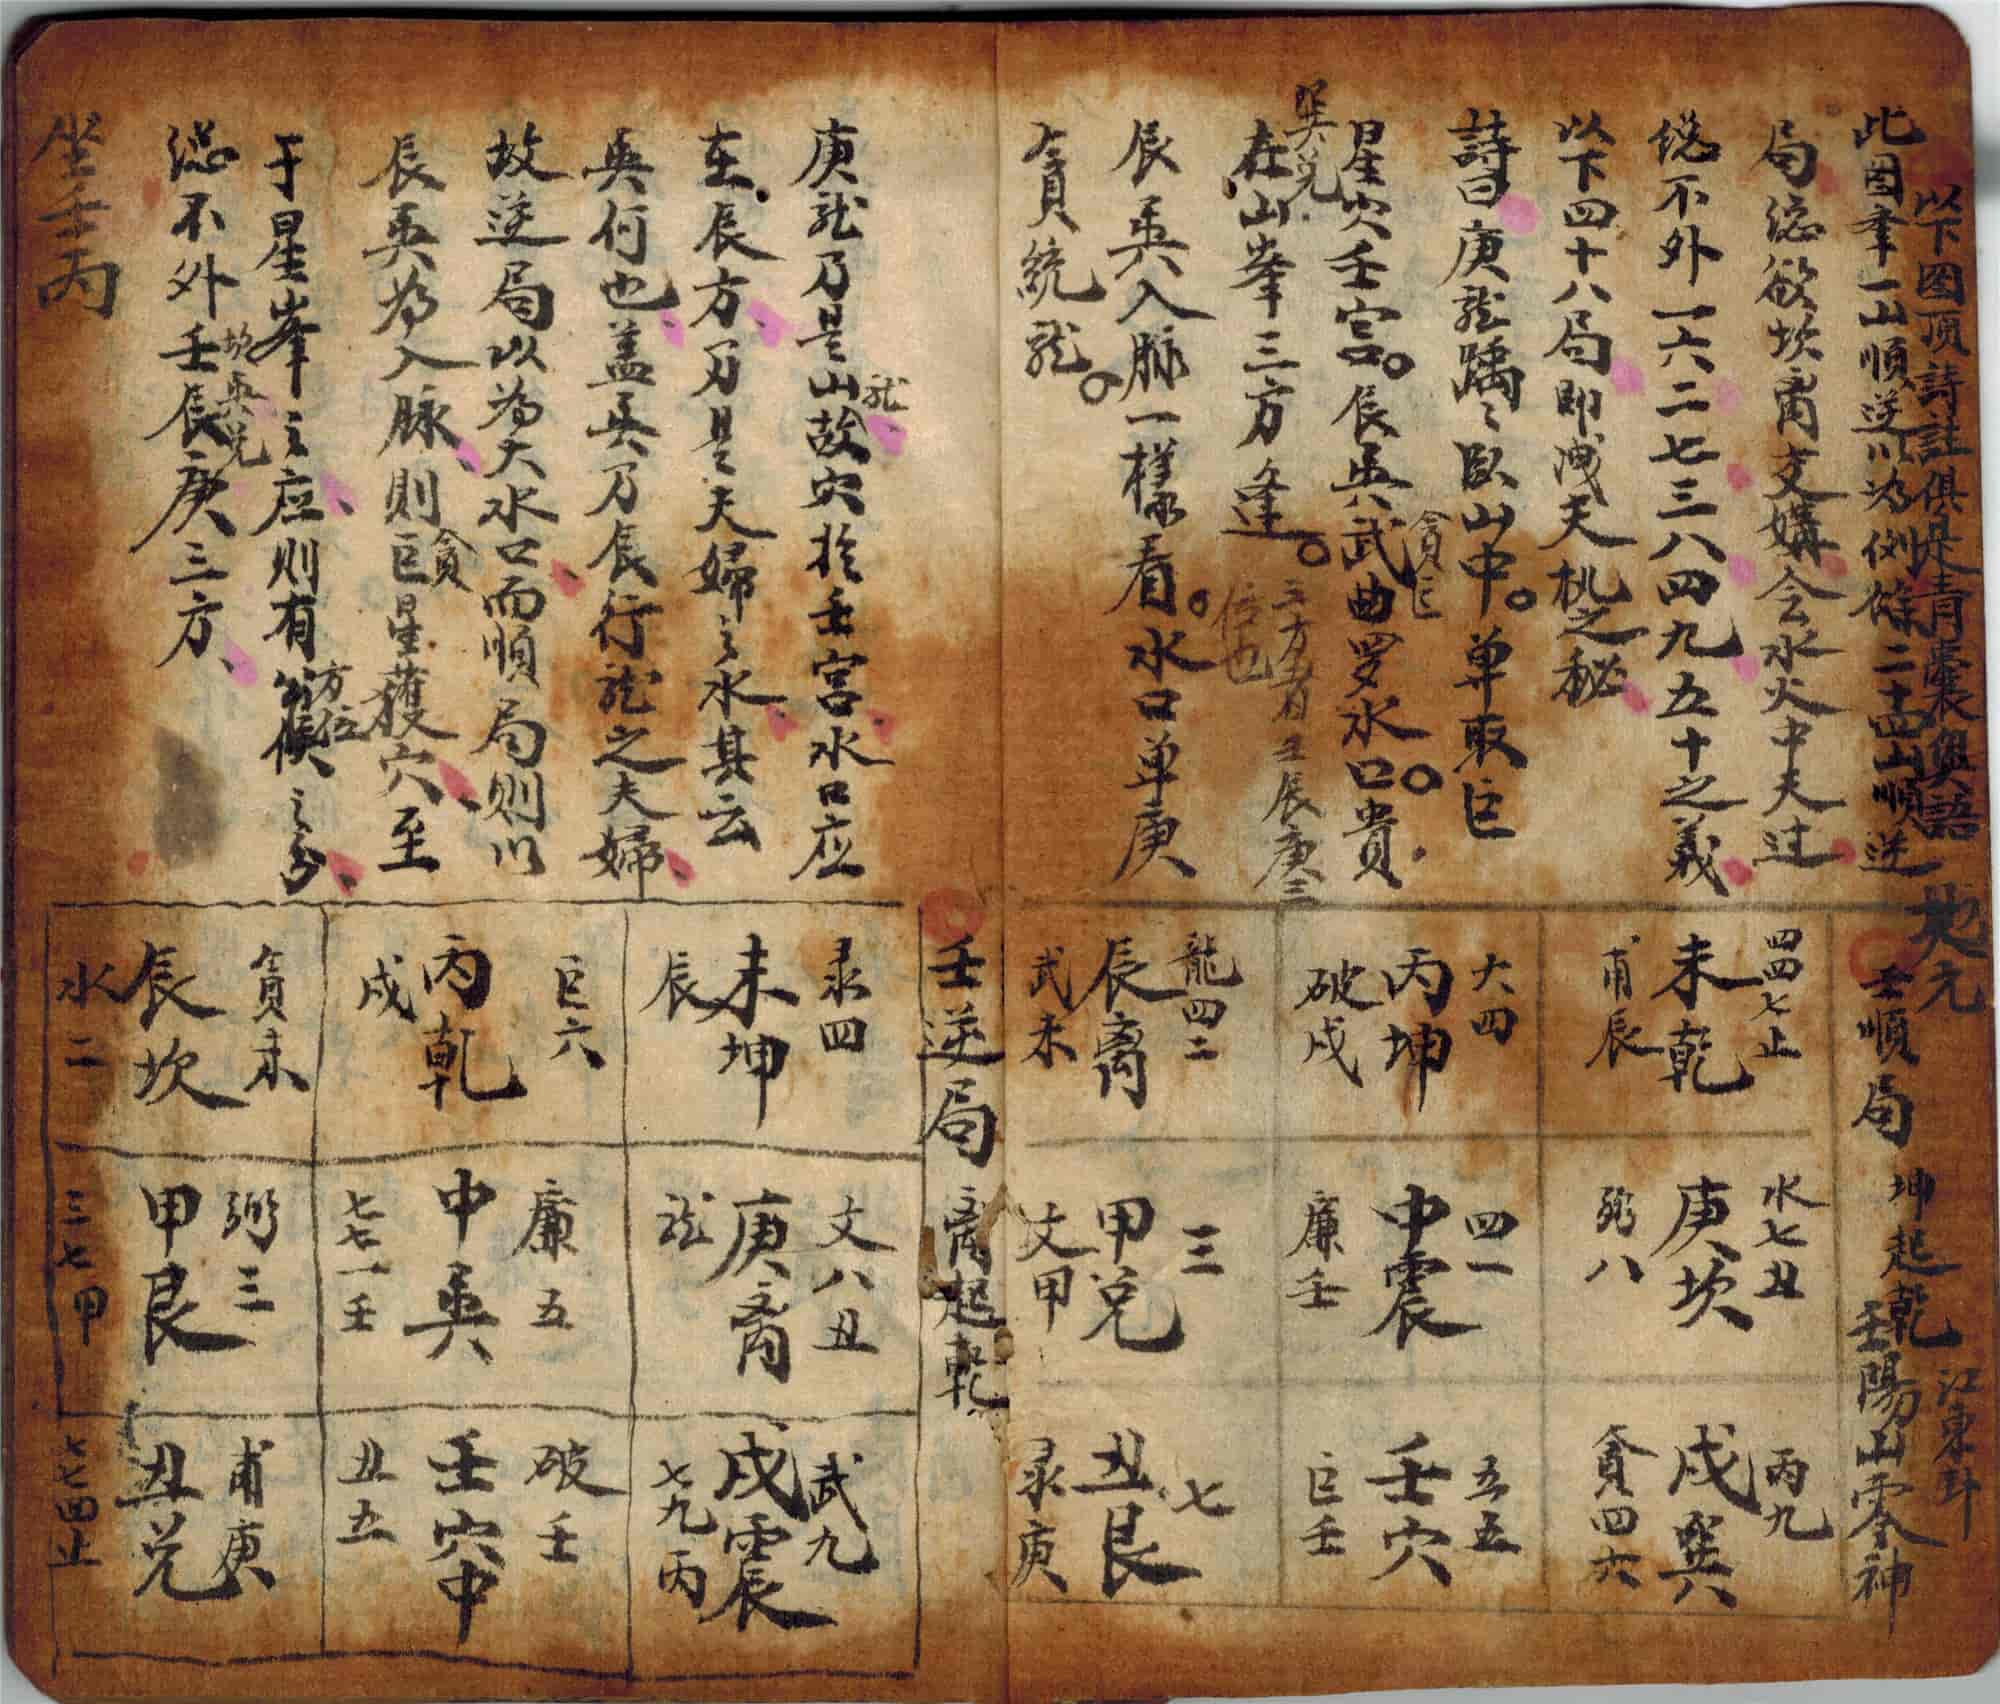 以下图顶詩註俱是青囊奥語
地元
此图牽一山順逆以为例餘二十四山順逆
局総欲坎离交媾会水火中天过
総不外一六二七三八四九五十之義
以下四十八局即洩天机之秘
詩曰庚龙踽々臥山中。单取巨
星穴壬宮。辰巽武曲罗水口。貴
貪巨
巽兑
在山峯三方逢。
三方者壬辰庚三
位也
辰巽入脉一樣看。水口单庚
貪統龙。
壬順局 坤起乾 壬陽山零神
江東卦
四四七止
未乾
甫辰
大四
丙坤
破戌
龍四二
辰离
武未
水七丑
庚坎
弼八
四一
中震
廉壬
三
甲兑
文甲
丙九
戌巽
貪四六
五五
壬穴
巨壬
七
丑艮
录庚
庚龙乃是山故穴於壬宮水口应
龙
在辰方乃是夫婦之水其云
巽何也盖巽乃辰行龙之夫婦
故逆局以为大水口而順局则以
辰巽为入脉則巨星蔭穴至
貪
于星峯之应则有篌之分
方位
総不外壬辰庚三方
坎巽兑
坐壬丙
壬逆局 离起乾
录四
未坤
辰
巨六
丙乾
戌
貪未
辰坎
水二
文八丑
庚离
龙
廉五
中巽
七七一壬
弼三
甲艮
三七甲
武九
戌震
七九丙
破壬
壬穴中
丑五
甫庚
丑兑
七七四止